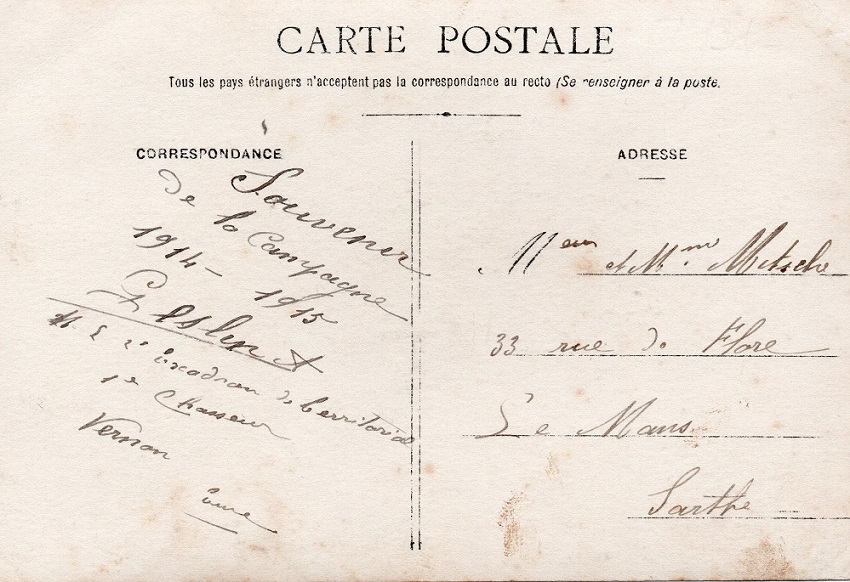 CARTE POSTALE
Tous les pays étrangers n'acceptent pas la correspondance au recto (Se renseigner à la poste.
CORRESPONDANCE
Souvenir
de la Campagne
1914 - 1915
2e Escadron de territorial
1er Chasseur
Vernon
Eure
ADRESSE
Mr et Mme Mitsche
33 rue de Flore
Le Mans
Sarthe